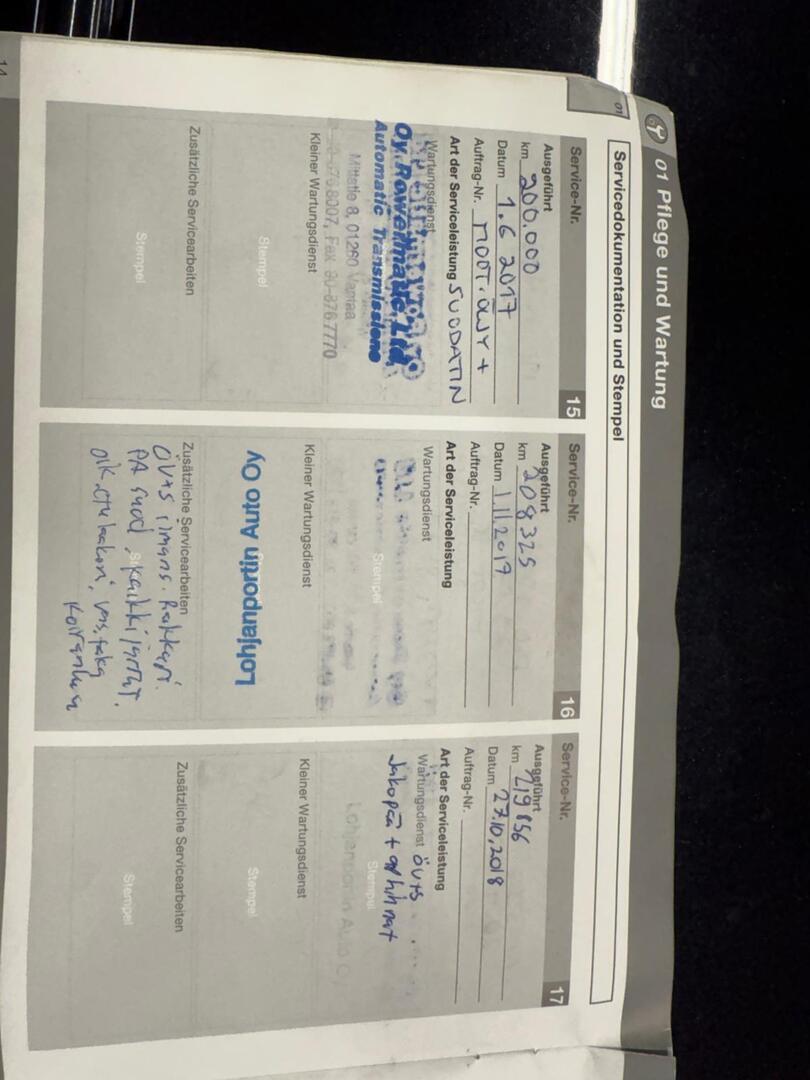 01 Pflege und Wartung
Servicedokumentation und Stempel
01
Service-Nr. 15
Ausgeführt
km 200.000
Datum 1.6 2017
Auftrag-Nr. MOOT.ÖLJY +
Art der Serviceleistung SUODATIN
Wartungsdienst
Oy. Rowelmatic Ltd.
Automatic Transmissions
8, 01260 Vantaa
Fax 90-8767770
Kleiner Wartungsdienst
Stempel
Zusätzliche Servicearbeiten
Stempel
Service-Nr. 16
Ausgeführt
km 208325
Datum 1.11.2017
Auftrag-Nr.
Art der Serviceleistung
Wartungsdienst
Stempel
Kleiner Wartungsdienst
Lohjanportin Auto Oy
Zusätzliche Servicearbeiten
ÖV+S
PA suod, kaikki
Service-Nr. 17
Ausgeführt
km 219856
Datum 27.10.2018
Auftrag-Nr.
Art der Serviceleistung
Wartungsdienst ÖV+S
Jakopää + 
Stempel
Lohjanportin Auto Oy
Kleiner Wartungsdienst
Stempel
Zusätzliche Servicearbeiten
Stempel
14